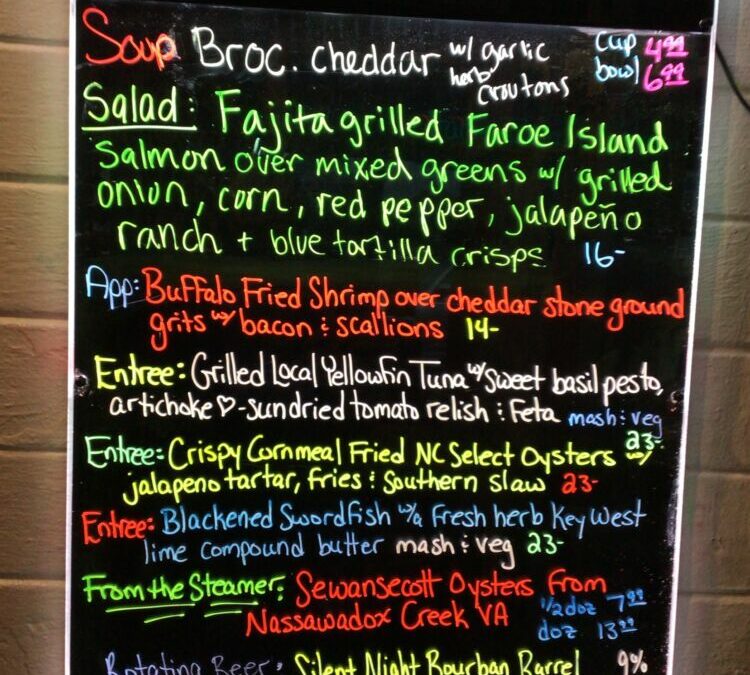 Soup Broc. cheddar w/ garlic herb croutons cup 4.99 bowl 6.99
Salad: Fajita grilled Faroe Island
Salmon over mixed greens w/ grilled
onion, corn, red pepper, jalapeño
ranch + blue tortilla crisps 16-
App: Buffalo Fried Shrimp over cheddar stone ground
grits w/ bacon & scallions 14-
Entree: Grilled Local Yellowfin Tuna w/ Sweet basil pesto,
artichoke ♡-sundried tomato relish & Feta mash & veg
23-
Entree: Crispy Cornmeal Fried NC Select Oysters w/
jalapeno tartar, fries & Southern slaw 23-
Entree: Blackened Swordfish w/a Fresh herb Key West
lime compound butter mash & veg 23-
From the Steamer: Sewansecott Oysters From
Nassawadox Creek VA 1/2 doz 7.99
doz 13.99
Rotating Beer: Silent Night Bourbon Barrel 9%